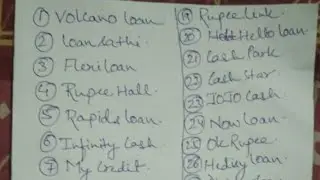 ① Volcano loan
② loan sathi.
③ Flexiloan
④ Rupee Hall.
⑤ Rapids loan.
⑥ Infinity Cash
⑦ My Credit.
⑲ Rupee Link.
⑳ Hello loan
㉑ Cash Park
㉓ Cash Star
㉓ JOJO Cash.
㉔ Now loan.
㉕ OK Rupee.
㉖ loan